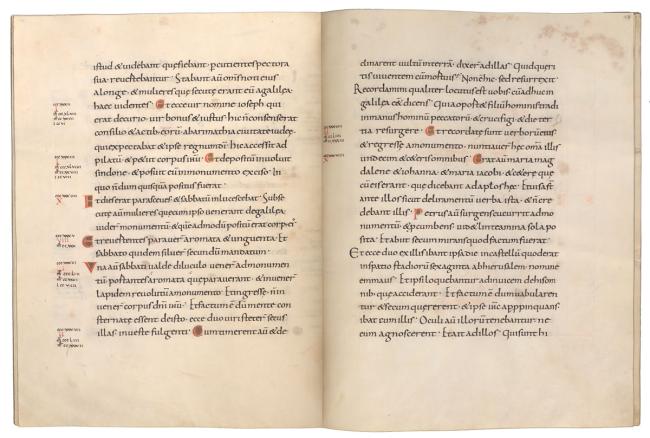 istud & uidebant quę fiebant percutientes pectora
sua reuertebantur · Stabant aū om̄s noti eius
alonge · & mulieres quę secutę erant eū agalilea
haec uidentes · Et ecce uir nomine ioseph qui
erat decurio · uir bonus & iustus · hic n̄ consenserat
consilio & actib eorū · abarimathia ciuitate iudeę ·
qui expectabat & ipse regnum dī · hic accessit ad
pilatū & petiit corpus ihū · Et depositū inuoluit
sindone · & posuit eum in monumento exciso · In
quo nondum quisquā positus fuerat ·
Et dies erat parasceues & sabbatū inlucescebat · Subse
cutę aū mulieres quę cum ipso uenerant degalilea ·
uider monumentū & quęadmodū positū erat corp ei ·
Et reuertentes parauer aromata & unguenta · Et
sabbato quidem siluer secundū mandatum ·
Una aū sabbati ualde diluculo uener admonumen
tū portantes aromata quę parauerant · & inuener
lapidem reuolutū amonumento · Et ingressę n̄ in
uener corpus dn̄i ihū · Et factum ē dū mente con
sternatę essent deisto · ecce duo uiri steter secus
illas inueste fulgenti · Cum timerent aū & de
clinarent uultū interrā · dixer adillas · Quid queri
tis uiuentem cū mortuis · Non ē hic · sed surrexit ·
Recordamini qualiter locutus est uobis cū adhuc in
galilea eēt dicens · Quia oportet filiū hominis tradi
inmanus hominū peccatorū & crucifigi · & die ter
tia resurgere · Et recordatę sunt uerborū eius
& regressę amonumento · nuntiauer hęc om̄a illis
undecim & cęteris omnibus · Erat aū maria mag
dalene & iohanna · & maria iacobi · & cęterę quę
cū eis erant · quę dicebant ad aptōs hęc · Et uisa st̄
ante illos sicut deliramentū uerba ista · & n̄ cre
debant illis · Petrus aū surgens cucurrit admo
numentū · & procumbens uidit linteamina sola po
sita · Et abiit secum mirans quod factum fuerat ·
Et ecce duo ex illis ibant ipsa die incastellū quod erat
inspatio stadiorū sexaginta abhierusalem · nomine
emmaus · Et ipsi loquebantur adinuicem dehis om
nib quę acciderant · Et factum ē dum fabularen
tur & secum quererent · & ipse ihc appropinquans
ibat cum illis · Oculi aū illorū tenebantur ne
eum agnoscerent · Et ait adillos · Qui sunt hi